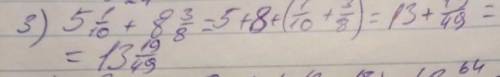 3) 5 1/10 + 8 3/8 = 5+8+(1/10 + 3/8) = 13 + 19/49 =
= 13 19/49
64